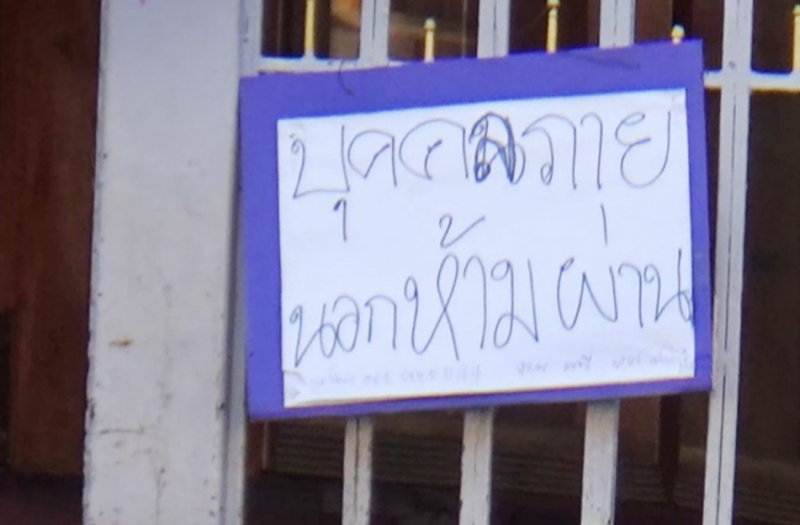 บุคคลภาย
นอกห้ามผ่าน